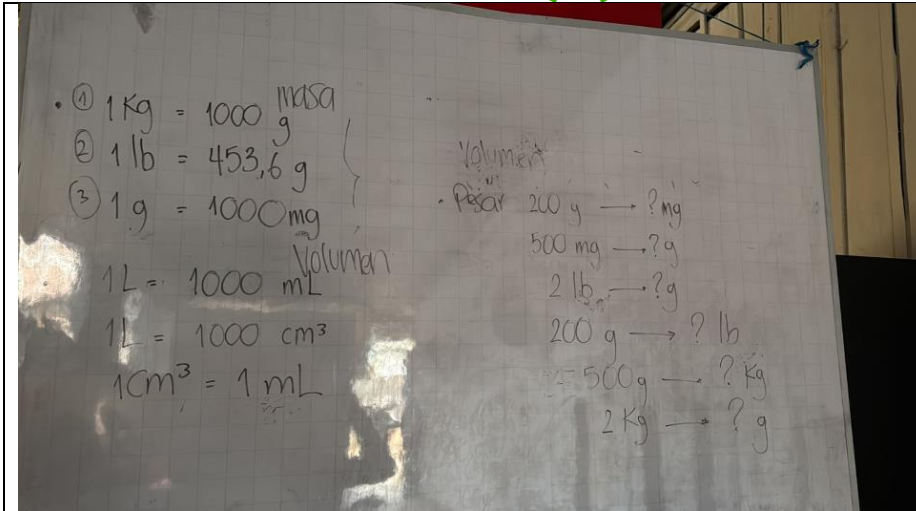 masa
① 1 Kg = 1000 g
② 1 lb = 453,6 g
③ 1 g = 1000 mg
Volumen
1L = 1000 mL
1L = 1000 cm³
1Cm³ = 1 mL
Volumen
• Pesar 200 g → ? mg
500 mg → ? g
2 lb → ? g
200 g → ? lb
500g → ? Kg
2 Kg → ? g